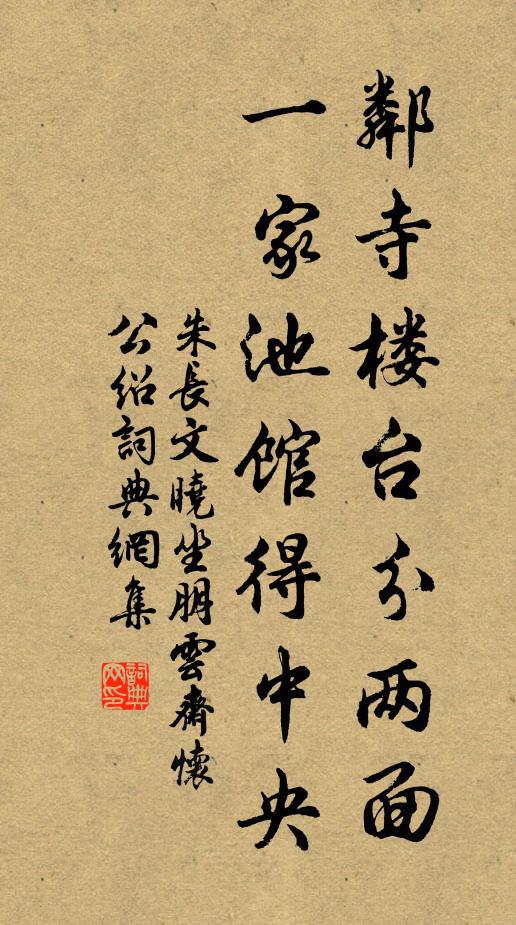 鄰寺楼台分两面
一家池馆得中央
朱長文曉坐朋雲齋懷
公绍詞典網集
詞典網印